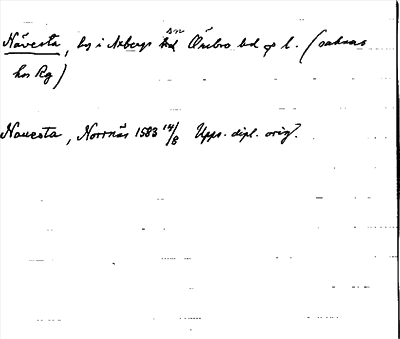 Nävesta, by i Axbergs sn Örebro hd o l. (saknas
hos Rg)
Nauesta, Norrnäs 1583 14/8 Upps. dipl. orig.